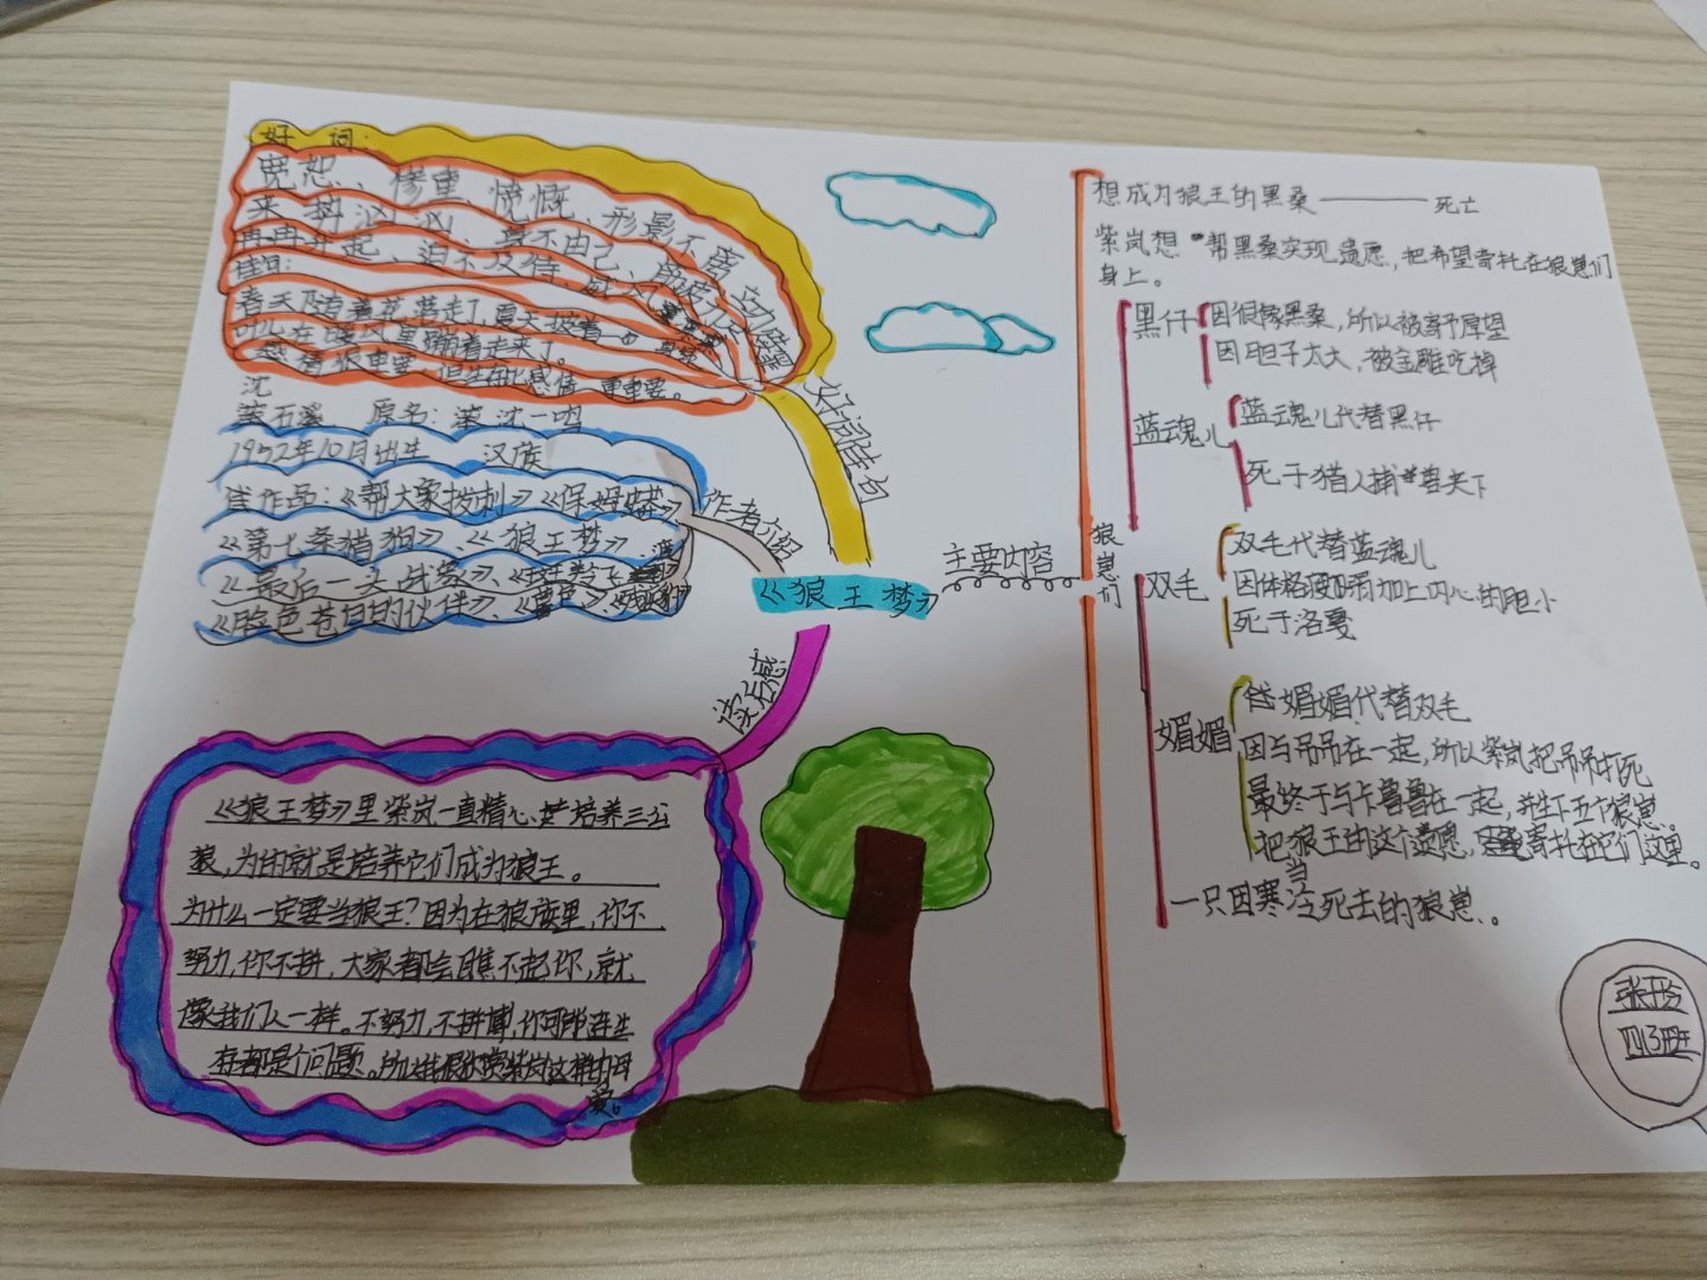 好词:
宽恕、惨重、慷慨、形影不离
来势汹汹、身不由己、威风
冉冉升起、迫不及待、
佳句:
春天踏着花荫走了,夏天披着一
叶从在暖风里蹦着走来了。
感情很重要,但生存比感情更重要。
好词佳句
沈
蒸石溪 原名:蒸沈一鸣
1952年10月出生 汉族
佳作品:《帮大象拔刺》《保姆蟒》
《第七条猎狗》、《狼王梦》
《最后一头战象》、
《脸色苍白的伙伴》、
作者介绍
《狼王梦》
读后感
《狼王梦》里紫岚一直精心培养三公
狼,为的就是培养它们成为狼王。
为什么一定要当狼王?因为在狼族里,你不
努力,你不拼,大家都会瞧不起你,就
像我们人一样。不努力,不拼博,你可能连生
存都是个问题。所以我很欣赏紫岚这样的母
爱。
主要内容
狼崽们
想成为狼王的黑桑——死亡
紫岚想帮黑桑实现遗愿,把希望寄托在狼崽们
身上。
黑仔
因很像黑桑,所以被寄予厚望
因胆子太大,被金雕吃掉
蓝魂儿
蓝魂儿代替黑仔
死于猎人捕兽夹下
双毛
双毛代替蓝魂儿
因体格瘦弱加上内心的胆小
死于洛戛
媚媚
媚媚代替双毛
因与吊吊在一起,所以紫岚把吊吊打死
最终于与卡鲁鲁在一起,并生下五个狼崽。
把当狼王的这个遗愿,寄托在它们这里。
一只因寒冷死去的狼崽。
四(3)班